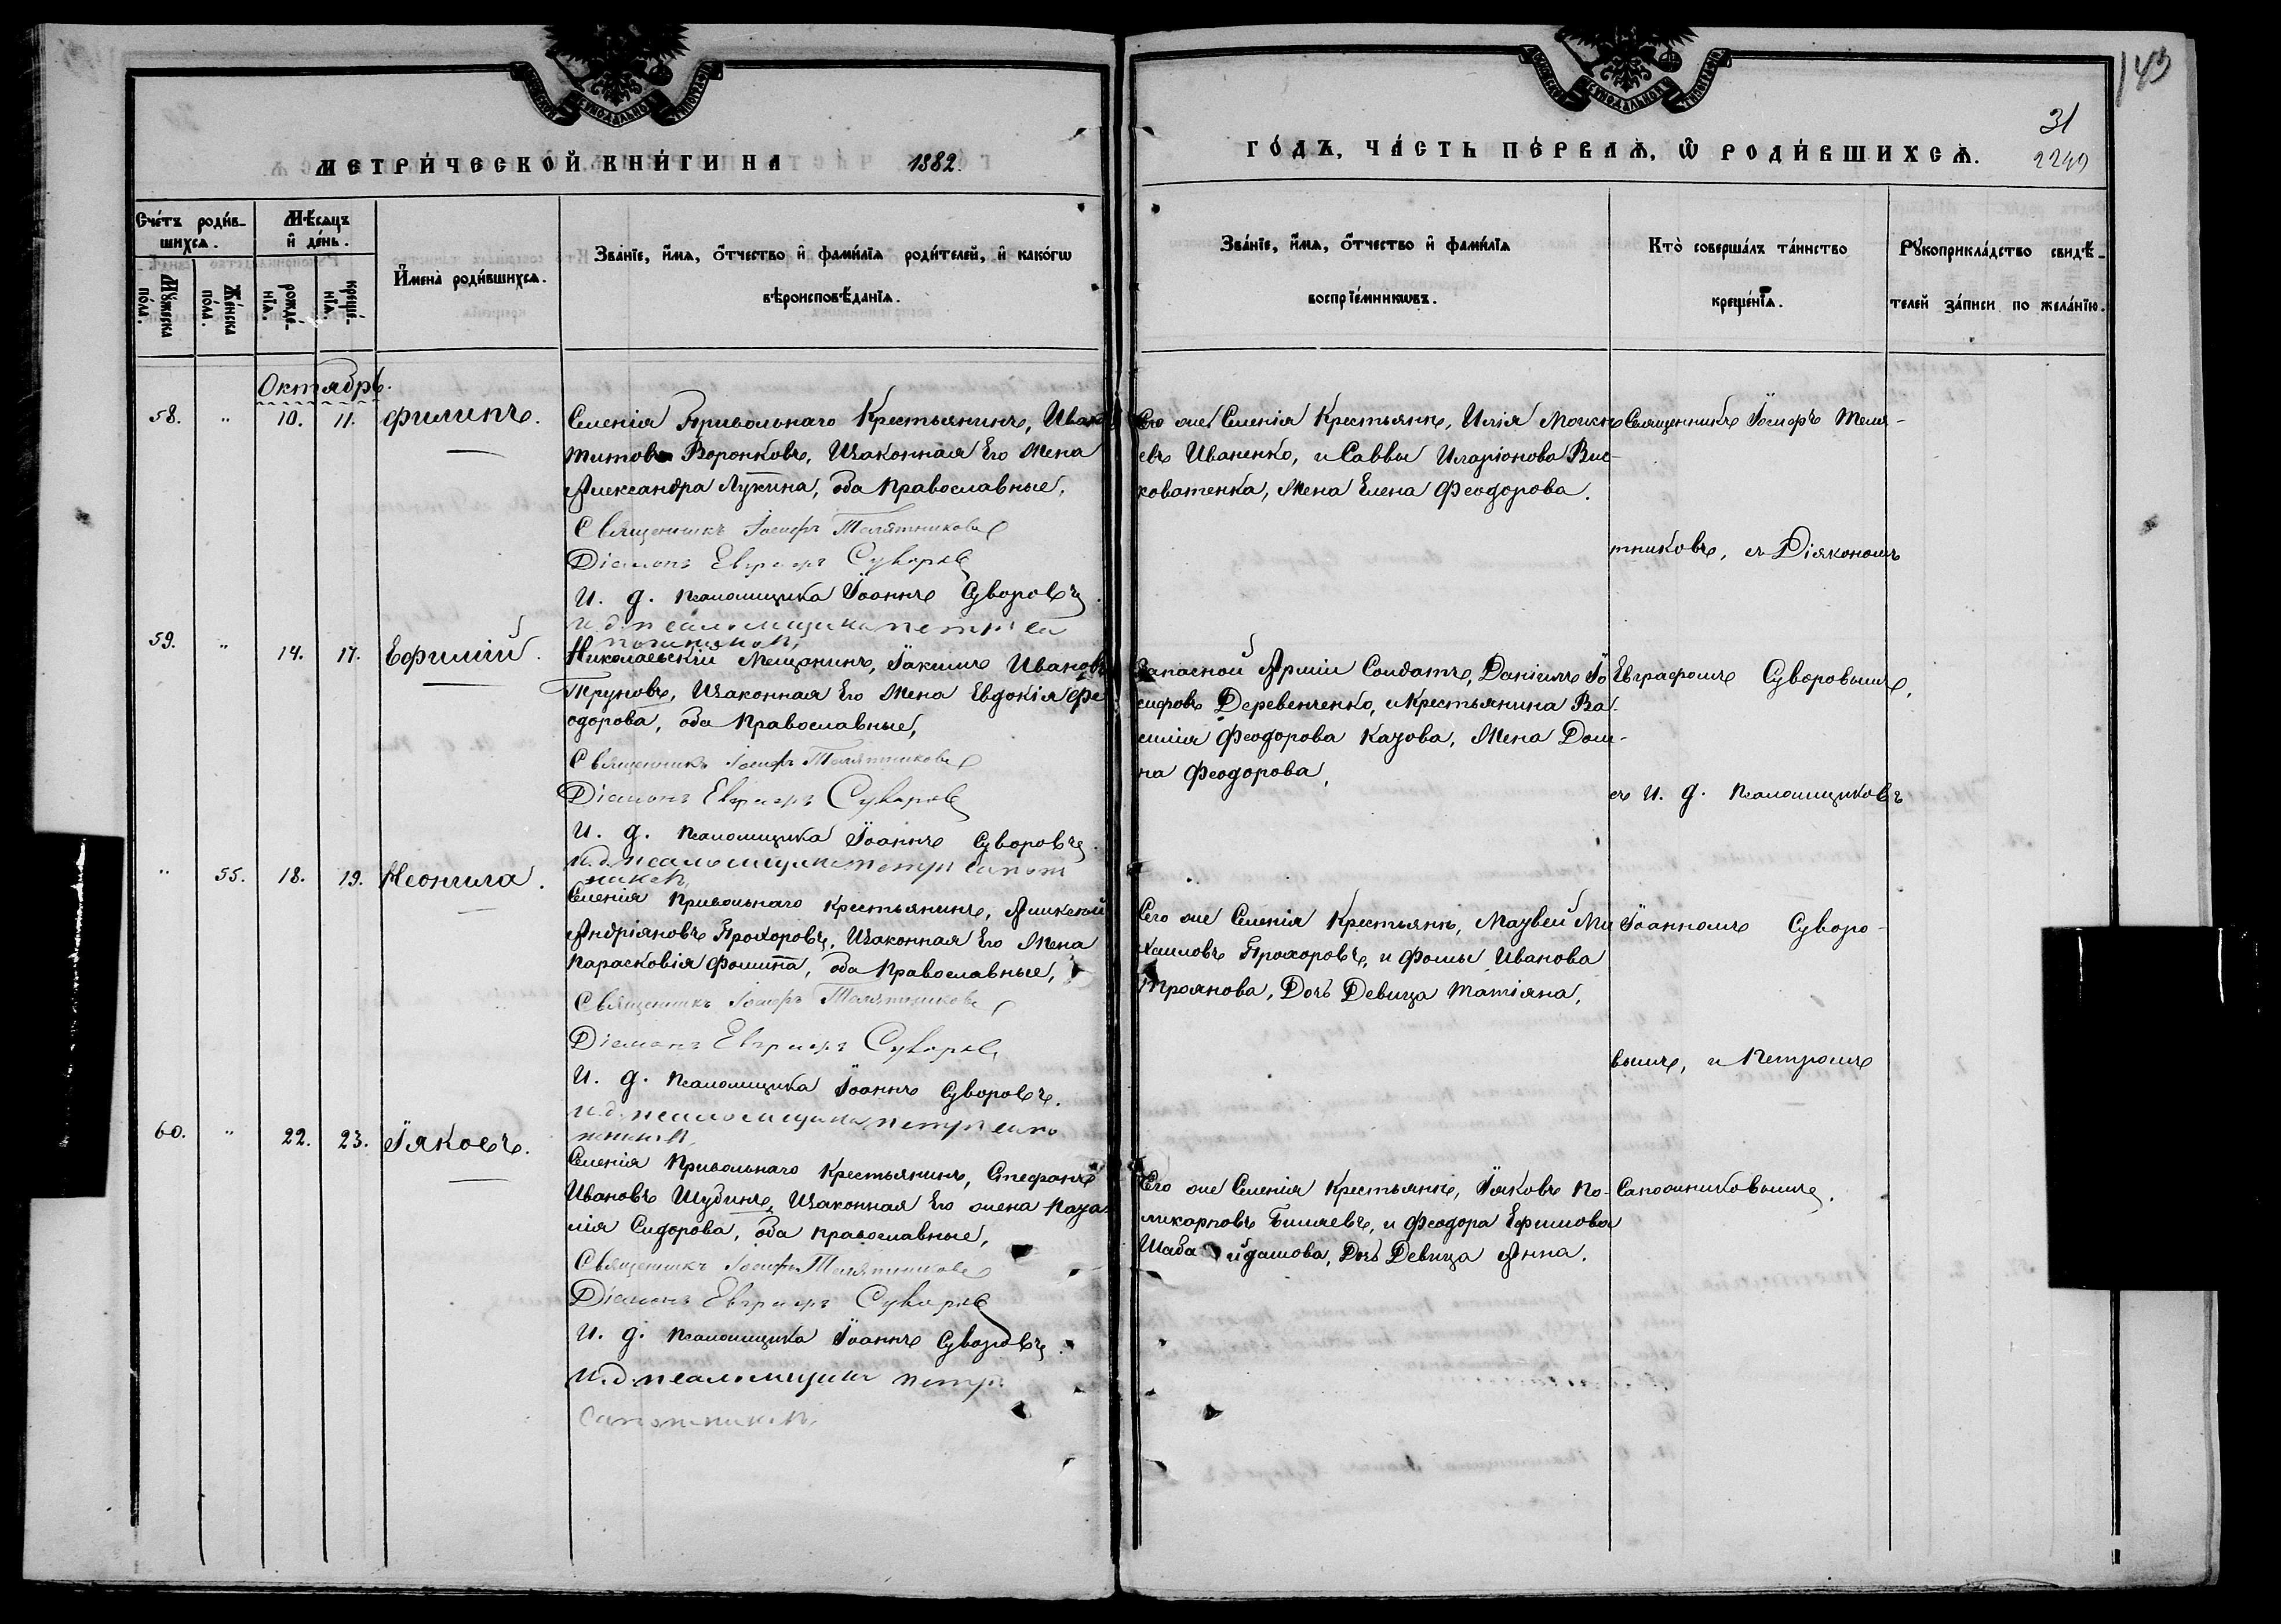 143
31
2249
МЕТРИ́ЧЕСКОЙ КНИ́ГИ НА 1882.
ГО́ДЪ, ЧА́СТЬ ПЕ́РВАѦ, Ѡ҆ РОДИ́ВШИХСѦ.
Сче́тъ роди́в-
шихсѧ.
Мѣ́сяцъ
и҆ де́нь.
Мꙋ́жеска
по́ла.
Же́нска
по́ла.
рожде́-
нїѧ.
креще́-
нїѧ.
И҆мена̀ роди́вшихсѧ.
Зва́нїе, и҆́мѧ, ѻ҆́тчество и҆ фами́лїѧ роди́телей, и҆ како́гѡ
вѣроисповѣ́данїѧ.
Зва́нїе, и҆́мѧ, ѻ҆́тчество и҆ фами́лїѧ
воспрїе́мникѡвъ.
Кто̀ соверша́лъ та́инство
креще́нїѧ.
Рꙋкоприкла́дство свидѣ́-
телей за́писи по жела́нїю.
Октябрь.
58. " 10. 11. Филипъ.
Селенія Привольнаго Крестьянинъ, Иванъ
Титовъ Воронковъ, Изаконная Его Жена
Александра Лукина, оба Православные,
Священникъ Іосифъ Телятниковъ
Діаконъ Евграфъ Суворовъ
И. д. псаломщика Іоаннъ Суворовъ.
и.д. псаломщика петръ са
пожников
Его же Селенія Крестьяне, Илія Моисе
евъ Иваненко, и Саввы Иларіонова Вис-
коватенка, Жена Елена Феодорова.
59. " 14. 17. Ефимій.
Николаевскій Мещанинъ, Іакимъ Ивановъ
Труновъ, Изаконная Его Жена Евдокія Фе
одорова, оба Православные,
Священникъ Іосифъ Телятниковъ
Діаконъ Евграфъ Суворовъ
И. д. псаломщика Іоаннъ Суворовъ.
и.д. псаломщика петръ сапож
ников
Запасной Арміи Солдатъ, Даніилъ Іо
сифовъ Деревенченко, и Крестьянина Ва
силія Феодорова Казова, Жена Дом-
на Феодорова,
" 55. 18. 19. Неонила.
Селенія Привольнаго Крестьянинъ, Алексей
Андріяновъ Прохоровъ, Изаконная Его Жена
Парасковія Фомина, оба Православные,
Священникъ Іосифъ Телятниковъ
Діаконъ Евграфъ Суворовъ
И. д. псаломщика Іоаннъ Суворовъ.
и.д. псаломщика петръ сапо
жников
Сего же Селенія Крестьяне, Матвей Ми
хаиловъ Прохоровъ, и Фомы Иванова
Троянова, Дочь Девица Татіяна,
60. " 22. 23. Іяковъ.
Селенія Привольнаго Крестьянинъ, Стефанъ
Ивановъ Шубинъ, Изаконная Его жена Пела
гія Сидорова, оба православные,
Священникъ Іосифъ Телятниковъ
Діаконъ Евграфъ Суворовъ
И. д. псаломщика Іоаннъ Суворовъ.
и.д. псаломщика петръ
сапожников
Его же Селенія Крестьяне, Іяковъ По-
ликарповъ Биляевъ, и Феодора Ефимова
Шаба йдашова, Дочь Девица Анна.
Священникъ Іосифъ Теля-
тниковъ, съ Діякономъ
Евграфомъ Суворовымъ,
съ И. д. псаломщиковъ
Іоанномъ Суворо-
вымъ, и Петромъ
Сапожниковымъ.